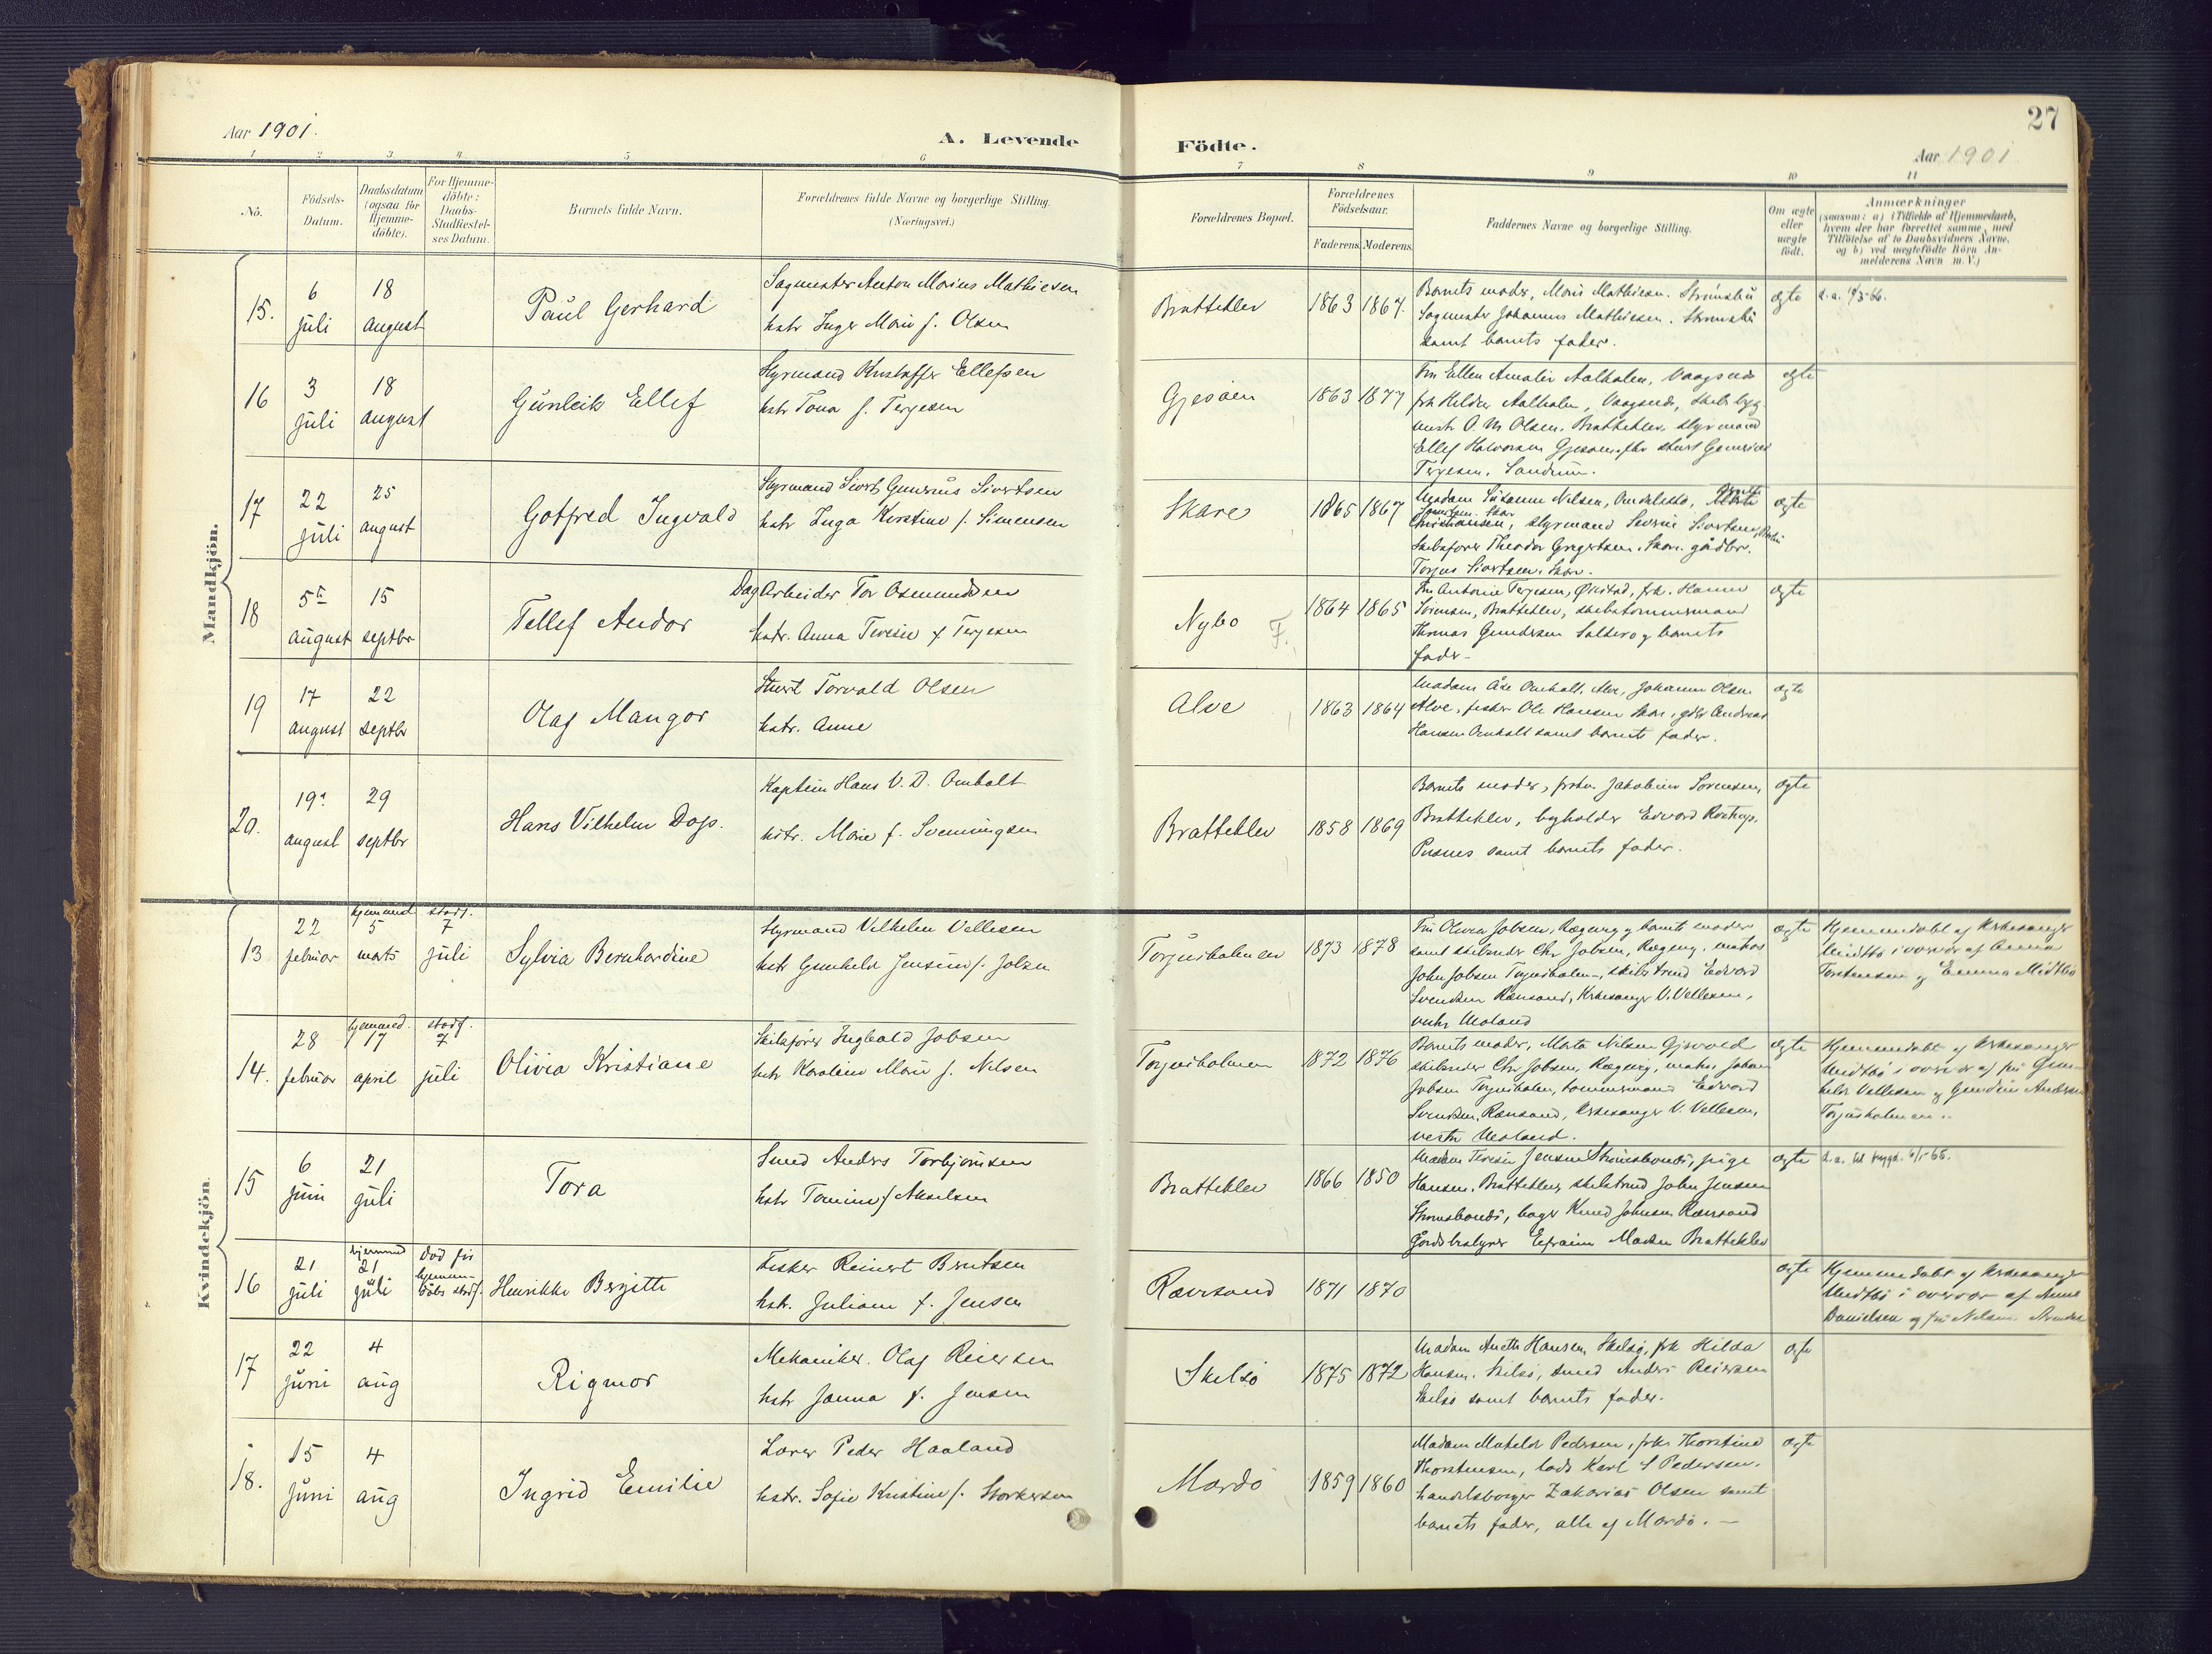 27
Aar 1901.
A. Levende
Födte.
Aar 1901
1 2 3 4 5 6 7 8 9 10 11
No.
Födsels-Datum.
Daabsdatum (ogsaa for Hjemme-döbte).
For Hjemme-döbte: Daabs-Stadfæstel-ses Datum.
Barnets fulde Navn.
Forældrenes fulde Navne og borgerlige Stilling.
(Næringsvei.)
Forældrenes Bopæl.
Forældrenes Födselsaar.
Faderens. Moderens.
Faddernes Navne og borgerlige Stilling.
Om ægte eller uægte födt.
Anmærkninger
(saasom: a) i Tilfælde af Hjemmedaab,
hvem der har forrettet samme, med
Tilföielse af to Daabsvidners Navne,
og b) ved uægtefödte Börn An-
melderens Navn m. V.)
Mandkjön.
15. 6 juli 18 august
Paul Gerhard
Sagmester Anton Marius Mathiesen
hstr Inger Marie f. Olsen
Bratteklev 1863 1867.
Barnets moder, Maris Mathiesen. Strømsbu
Sagmester Johannes Mathiesen. Strømsbu
samt barnets fader.
ægte
16 3 juli 18 august
Gunleik Ellef
Styrmand Kristoffer Ellefsen
hstr Tona f. Terjesen
Gjesøen 1863 1877
Fru Ellen Amalie Aalholm, Vaagsnes
frk Hilda Aalholm, Vaagsnes, skibsbyg-
mestr O. M Olsen. Bratteklev, styrmand
Ellef Halvorsen Gjesøen,
Terjesen, Sandum.
ægte
17 22 juli 25 august
Gotfred Ingvald
Styrmand Sivert Gunerius Sivertsen
hstr Inga Kirstine f. Simensen
Skare 1865 1867
Madam Susanne Nilsen,
Christiansen, styrmand Severin Sivertsen,
Skibsfører Theodor Gregertsen, Skare. gårdbr.
Torjus Sivertsen. Skare.
ægte
18 5te august 15 septbr
Tellef Andor
Dagarbeider Tor Osmundsen
hstr. Anna Teresie f Terjesen
Nybo F. 1864 1865
Fru Antonie Terjesen, frk. Hanna
Sørensen, Bratteklev, skibstømmermand
Thomas Gundersen og barnets
fader-
ægte
19 17 august 22 septbr
Olaf Mangor
Stuert Torvald Olsen
hstr. Anne
Alve 1863 1864
Madam Åse Omholt, Alve, Johanne Olsen
Alve, fisker Ole Hansen Skare, gdbr Andreas
Hansen Omholt samt barnets fader.
ægte
20. 19de august 29 septbr
Hans Vilhelm Dop.
Kaptein Hans V. D. Omholt
hstr. Marie f. Svenningsen
Bratteklev 1858 1869
Barnets moder, Jakobine Sørensen,
Bratteklev, Edvard
Pusnes samt barnets fader.
ægte
Kvindekjön.
13 22 februar hjemmed 5 marts stadf. 7 juli
Sylvia Bernhardine
Styrmand Vilhelm Vellesen
hstr Gunhild Jensine f. Jobsen
Torjusholmen 1873 1878
Fru Olivia Jobsen, Rægevig og barnets moder
samt skibsreder Chr Jobsen, Rægevig. matros
John Jobsen Torjusholmen, skibstømd Edvard
Svendsen Rævesand, Kirkesanger V. Vellesen,
vestre Moland
ægte
Hjemmedøbt af Kirkesanger
Midtbø i overvær af Anna
Torstensen og Emma Midtbø
14. 28 februar hjemmed. 17 april stadf. 7 juli
Olivia Kristiane
Skibsfører Ingvald Jobsen
hstr Karoline Marie f. Nilsen
Torjusholmen 1872 1876
Barnets moder, Marta Nilsen Gjervold
skibsreder Chr Jobsen, Rægevig, matros Johan
Jobsen Torjusholmen, tømmermand Edvard
Svendsen, Rævesand, Kirkesanger V. Vellesen,
vestre Moland.
ægte
Hjemmedøbt af Kirkesanger
Midtbø i overvær af fru Gun-
hild Vellesen og Gundine Andersen
Torjusholmen.
15 6 juni 21 juli
Tora
Smed Anders Torbjørnsen
hstr Tomine f Akselsen
Bratteklev 1866 1850
Madam Teresie Jensen Strømsbones, pige
Hansen. Bratteklev, skibstømd John Jensen
Strømsbones, bager Knud Johnsen Rævesand
Gårdbestyrer Efraim Madsen Bratteklev
ægte
16 21 juli hjemmed 21 juli død før hjemme-dåbs stadf.
Henrikke Bergitte
Fisker Reinert Berntsen
hstr. Juliane f. Jensen
Rævesand 1871 1870
ægte
Hjemmedøbt af Kirkesanger
Midtbø i overvær af Anne
Danielsen og fru Nilsen Arendal
17 22 juni 4 aug
Rigmor
Mekaniker. Olaf Reiersen
hstr Janna f. Jensen
Skilsø 1875 1872
Madam Aneth Hansen, Skilsø, frk Hilda
Hansen. Skilsø, smed Anders Reiersen
Skilsø samt barnets fader.
ægte
18. 15 juni 4 aug
Ingrid Emilie
Lærer Peder Haaland
hstr. Sofie Kristine f. Storkersen
Mærdø 1859 1860
Madam Matilde Pedersen, frk. Thorstine
Thorstensen, lods Karl S Pedersen.
handelsborger Zakarias Olsen samt
barnets fader, alle af Mærdø.-
ægte